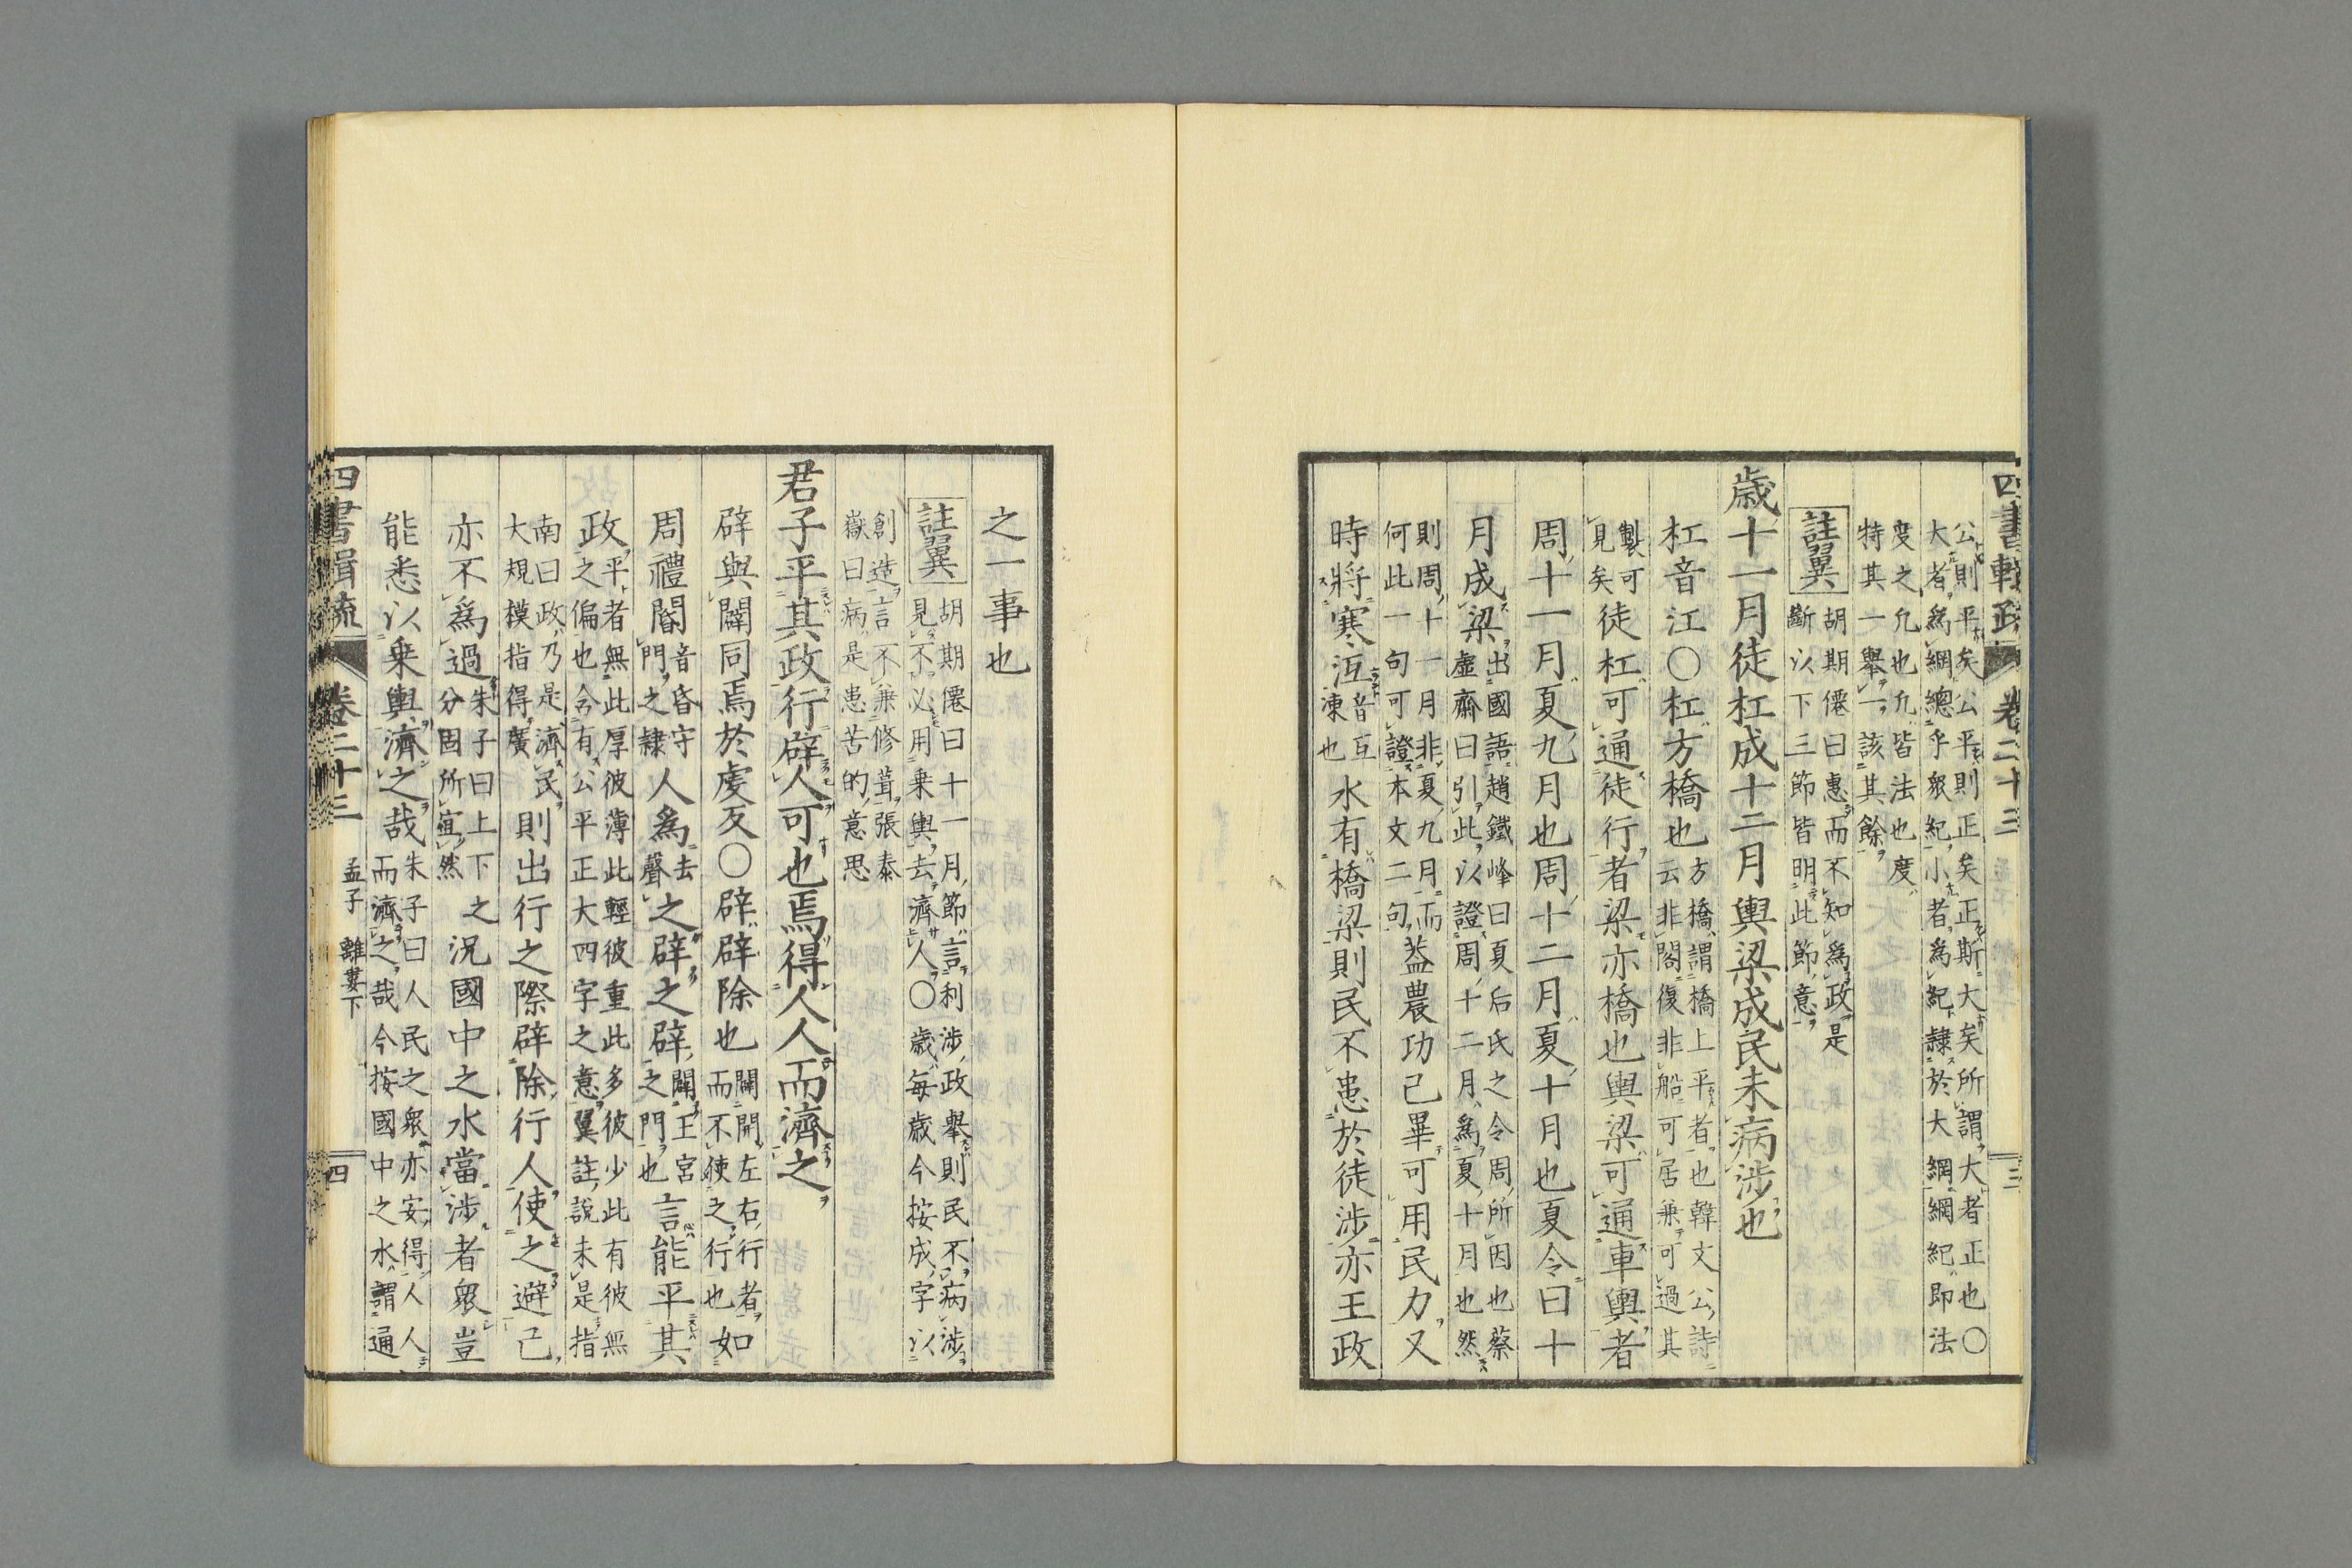 四書輯疏 卷二十三 三
公則平矣公平則正矣正斯大矣所謂大者正也〇
大者爲綱總乎衆紀小者爲紀隷於大綱綱紀即法
度之凡也凡皆法也度
特其一舉一該其餘
註翼
胡期僊曰惠而不知爲政是
斷以下三節皆明此節意
歲十一月徒杠成十二月輿梁成民未病涉也
杠音江〇杠方橋也
方橋謂橋上平者也韓文公詩
云非閣復非船可居兼可過其
製可
見矣
徒杠可通徒行者梁亦橋也輿梁可通車輿者
周十一月夏九月也周十二月夏十月也夏令曰十
月成梁
出國語趙鐵峰曰夏后氏之令周所因也蔡
虛齋曰引此以證周十二月爲夏十月也然
則周十一月非夏九月而
何此一句可證本文二句
蓋農功已畢可用民力又
時將寒沍
音互
凍也
水有橋梁則民不患於徒涉亦王政
之一事也
註翼
胡期僊曰十一月節言利涉政舉則民不病涉
見不必用乗輿去濟人〇歲每歲今按成字以
創造言不兼修葺張泰
嶽曰病是患苦的意思
君子平其政行辟人可也焉得人人而濟之
辟與闢同焉於虔反〇辟辟除也
闢開左右行者
而不使之行也
如
周禮閽
音昏守
門之隷
人爲
去
聲
之辟之辟
闢王宮
之門也
言能平其
政
平者無此厚彼薄此輕彼重此多彼少此有彼無
之偏也令有公平正大四字之意翼註說未是指
南曰政乃是濟民
大規模指得廣
則出行之際辟除行人使之避己
亦不爲過
朱子曰上下之
分固所宜然
況國中之水當涉者衆豈
能悉以乗輿濟之哉
朱子曰人民之衆亦安得人人
而濟之哉今按國中之水謂通
四書輯疏 卷二十三 孟子 離婁下 四